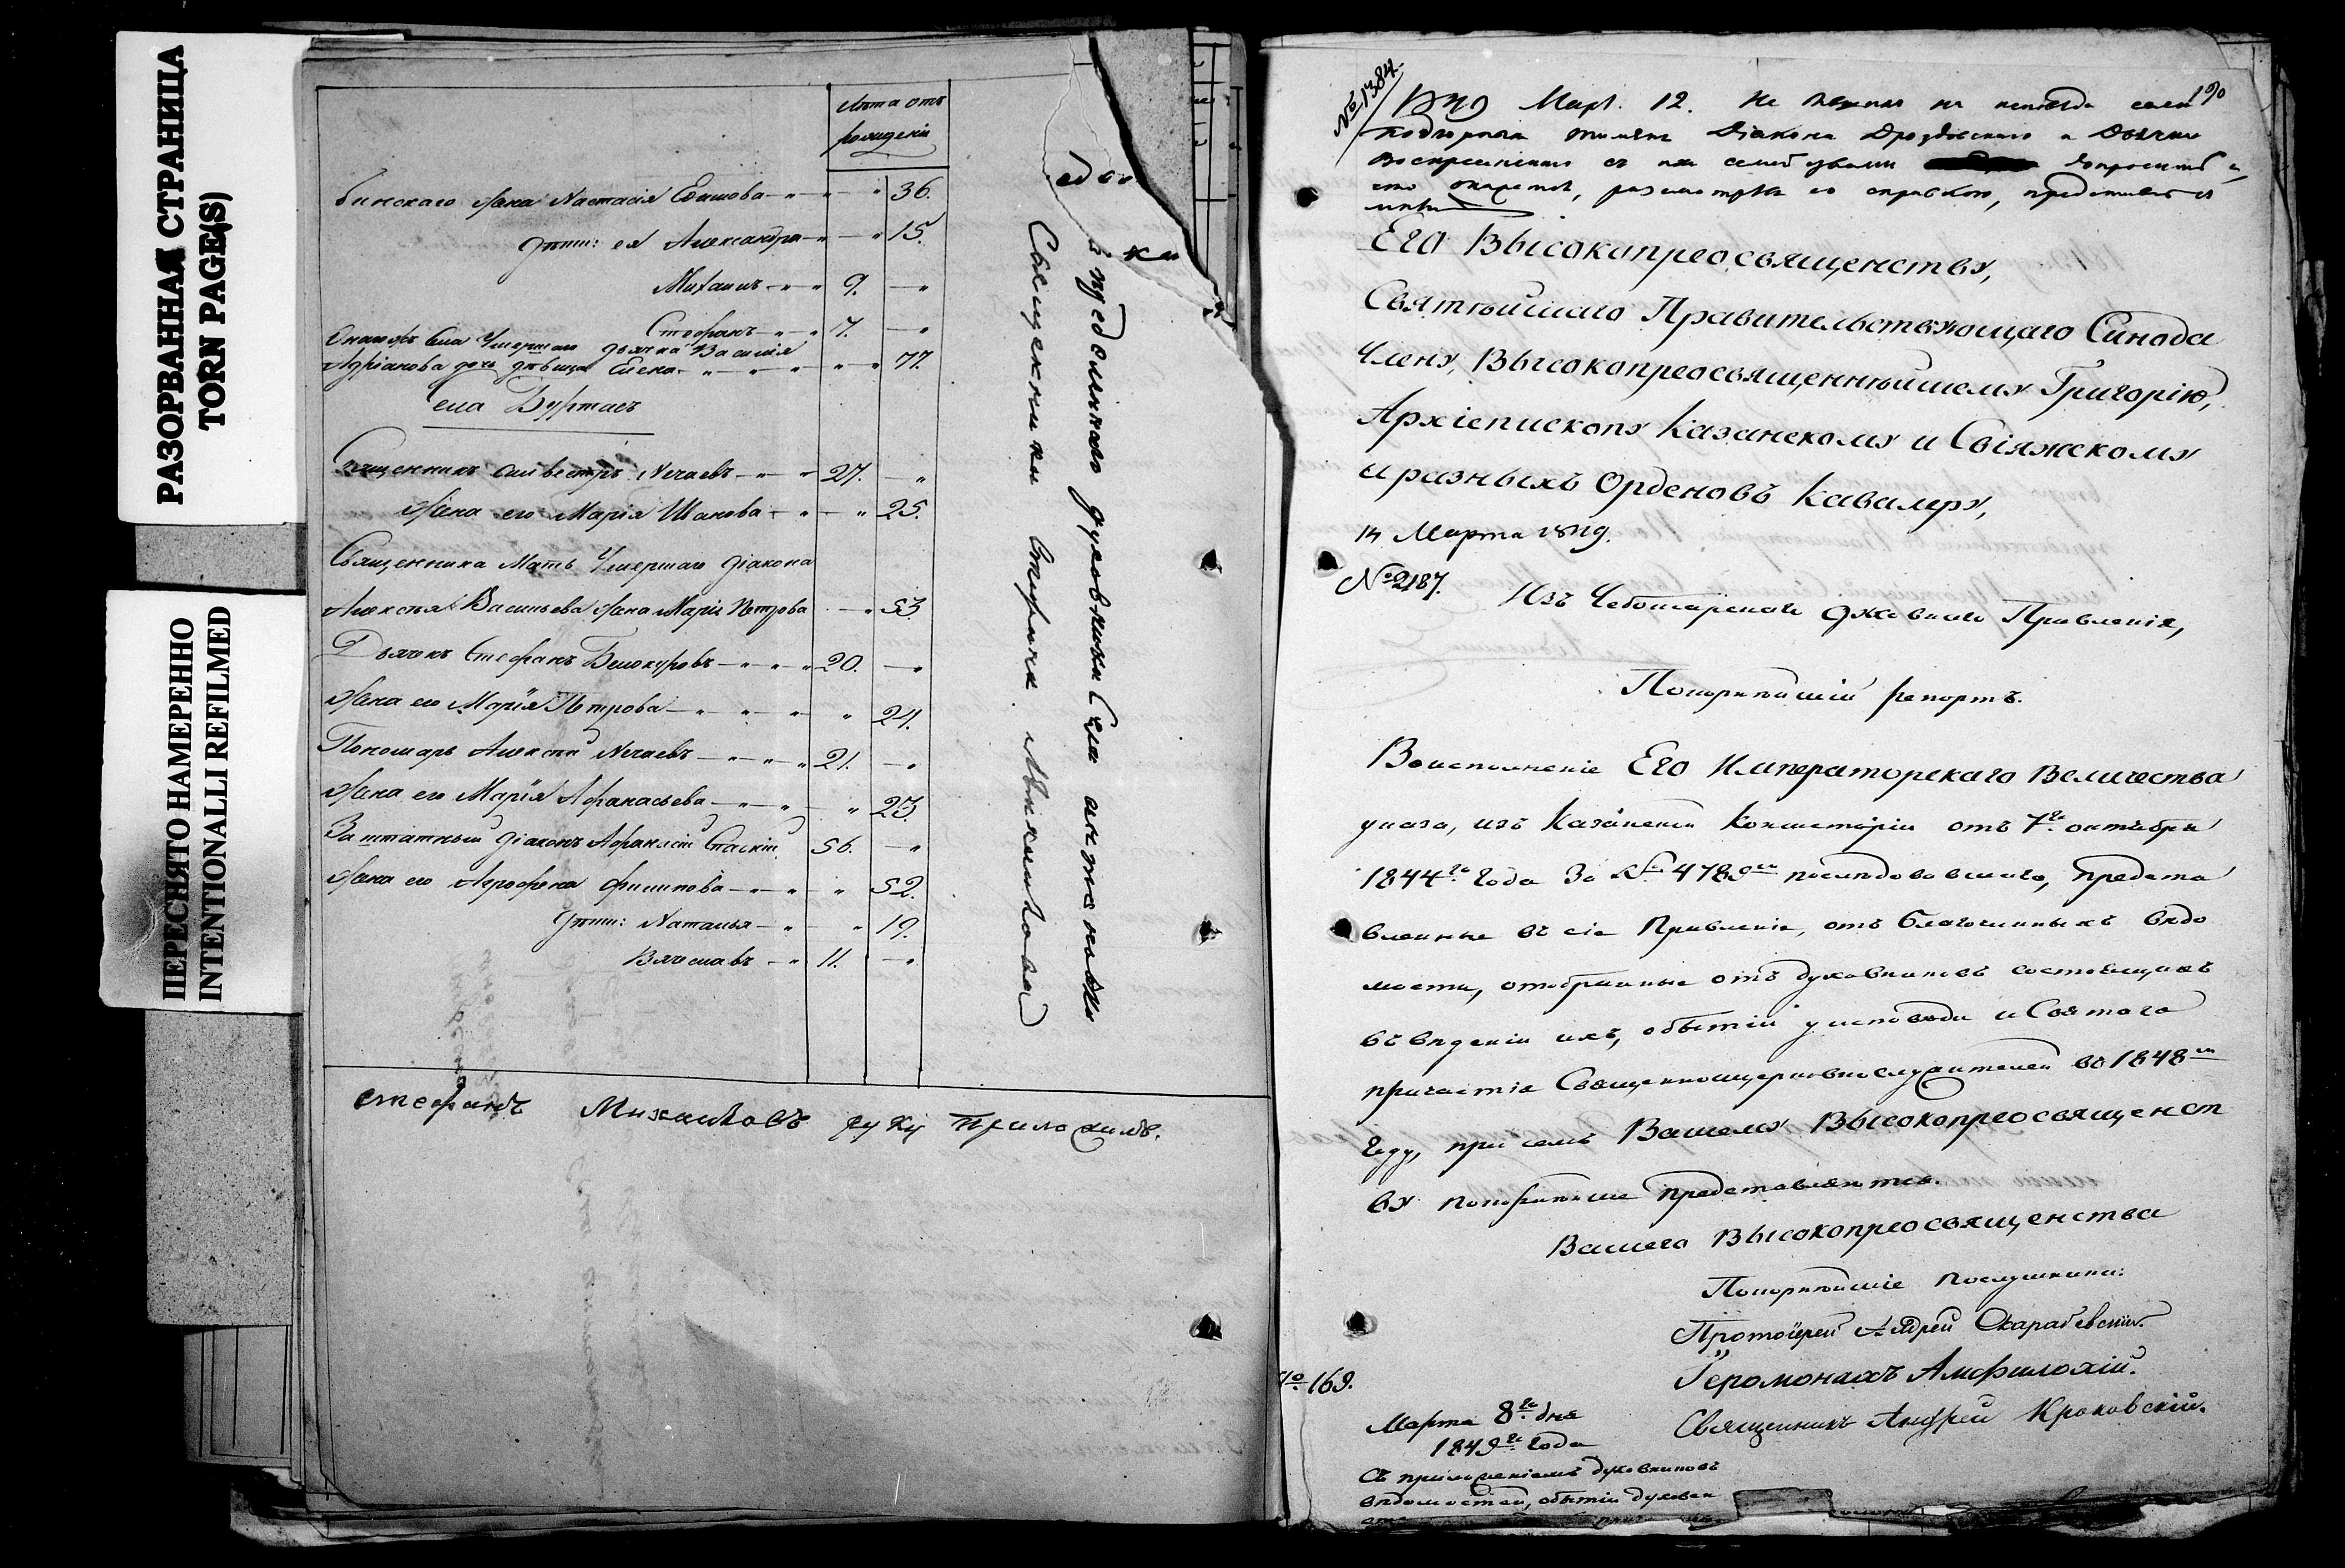 РАЗОРВАННАЯ СТРАНИЦА
TORN PAGE(S)
ПЕРЕСНЯТО НАМЕРЕННО
INTENTIONALLI REFILMED
Лѣта отъ
рожденія
бинскаго жена Настасія Ефимова 36.
Дѣти: ея Александра 15.
Михаилъ 9.
Стефанъ 7.
села Умершаго дьячка Василія
Адріанова дочь дѣвица Елена 77.
села Буртасъ
Священникъ Сильвестръ Нечаевъ 27.
Жена его Марія Иванова 25.
Священника Мать Умершаго діакона
Алексѣя Васильева жена Марія Петрова 53.
Дьячокъ Стефанъ Белокуровъ 20.
Жена его Марія Петрова 24.
Пономарь Алексѣй Нечаевъ 21.
Жена его Марія Афанасьева 23.
Заштатный діаконъ Афанасій Спаскій 56.
Жена его Агрофена Филипова 52.
Дѣти: Наталья 19.
Вячеславъ 11.
духовникъ Села
Священникъ Стефанъ
Стефанъ Михайловъ руку приложилъ.
№ 1384.
190
1849 Март. 12. Не
Діакона Дроздовскаго и Дьячка
Воскресенскаго съ допросить и,
что окажется, разсмотрѣвъ со справкою, представить съ
мнѣн
Его Высокопреосвященству,
Святѣйшаго Правительствующаго Синода
Члену, Высокопреосвященнѣйшему Григорію,
Архіепископу Казанскому и Свіяжскому
и разныхъ Орденовъ Кавалеру,
14 Марта 1849.
№ 2187.
Изъ Чебоксарскаго Духовнаго Правленія,
Покорнѣйшій Репортъ.
Во исполненіе Его Императорскаго Величества
указа, изъ Казанской Консисторіи отъ 7го октября
1844го Года За № 4789м последовавшаго, предста
вленные въ сіе Правленіе, отъ Благочинныхъ вѣдо
мости, отобранныя отъ духовниковъ состоящихъ
въ вѣденіи ихъ, о бытіи у исповѣди и Святаго
причастія Священноцерковнослужителей въ 1848м
Году, при семъ Вашему Высокопреосвященст
ву покорнѣйше представляются.
Вашего Высокопреосвященства
Покорнѣйшіе послушники:
Протоіерей Андрей
Іеромонахъ Амфилохій.
Священникъ Андрей Кроковскій.
№ 169.
Марта 8го дня
1849го Года
Съ приложеніемъ духовниковъ
вѣдомостей, о бытіи духовен